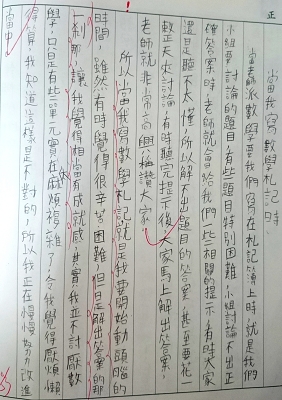 正
當我寫數學札記時
當老師派數學要我們寫在札記簿上時就是我們
小組要討論的題目,有些題目特別困難,小組討論不出正
確答案時,老師就會給我們一些相關的提示,有時大家
還是聽不太懂,所以解不出題目的答案,甚至要花一
整天來討論,有時聽完提示後大家馬上解出答案,
老師就非常高興稱讚大家。
所以當我寫數學札記就是我要開始動頭腦的
時間,雖然有時覺得很辛苦困難,但是解出答案的那
一剎那,讓我覺得相當有成就感,其實我並不討厭數
學,只是有些單元實在麻煩複雜了,令我覺得厭煩懶
得算,我知道這樣是不對的,所以我正在慢慢努力改進
當中。